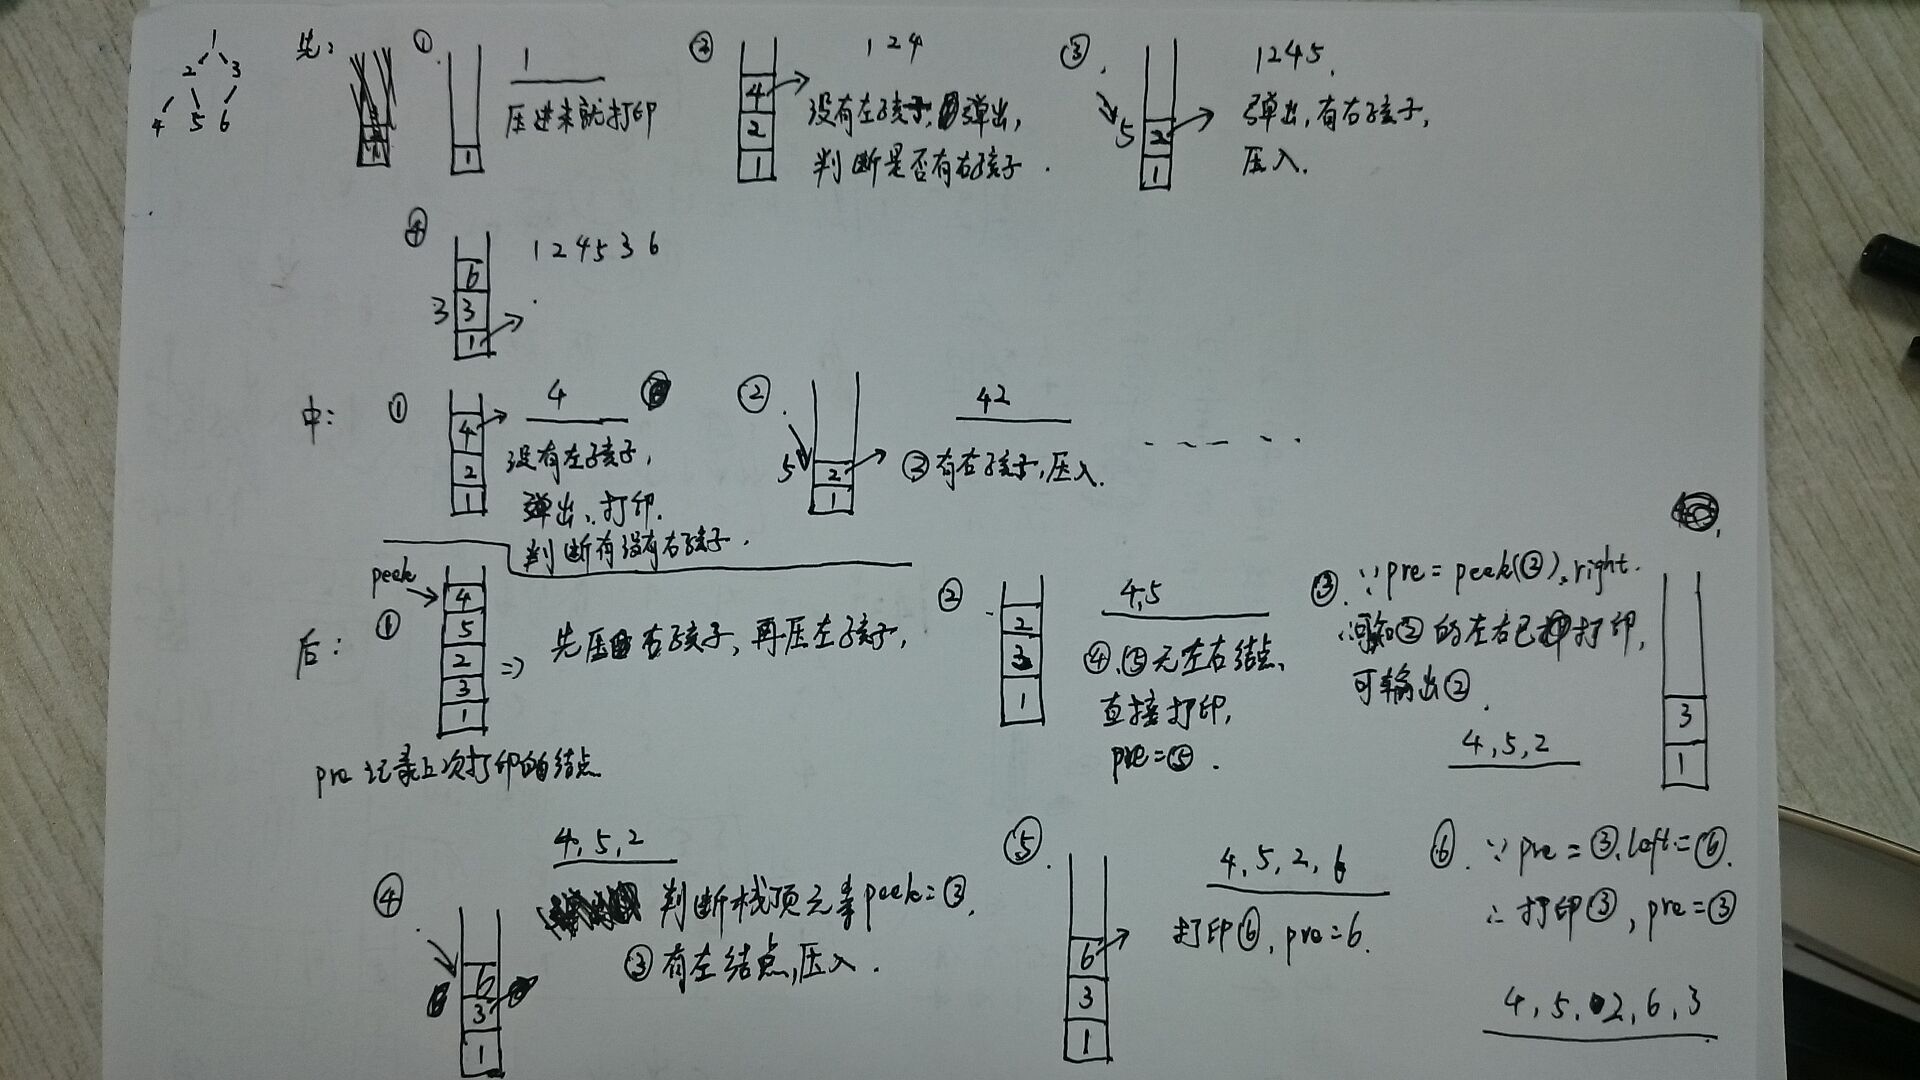 1
2 3
4 5 6
先:
①
1
1
压进来就打印
②
1 2 4
4
2
1
没有左孩子,弹出,
判断是否有右孩子.
③
1 2 4 5.
5
2
1
弹出,有右孩子,
压入.
④
1 2 4 5 3 6
6
3 3
1
中:
①
4
4
2
1
没有左孩子,
弹出、打印.
判断有没有右孩子.
②
42
5
2
1
②有右孩子,压入.
后:
①
peek
4
5
2
3
1
=>
先压右孩子,再压左孩子,
pre记录上次打印的结点
②
2
3
1
4,5
④、⑤无左右结点、
直接打印,
pre=⑤.
③
∵pre=peek(②).right.
∴可知②的左右已打印,
可输出②.
4,5,2
3
1
④
4,5,2
6
3
1
判断栈顶元素peek=③,
③有左结点,压入.
⑤
6
3
1
4,5,2,6
打印⑥,pre=6.
⑥
∵pre=③.left=⑥.
∴打印③,pre=③
4,5,2,6,3